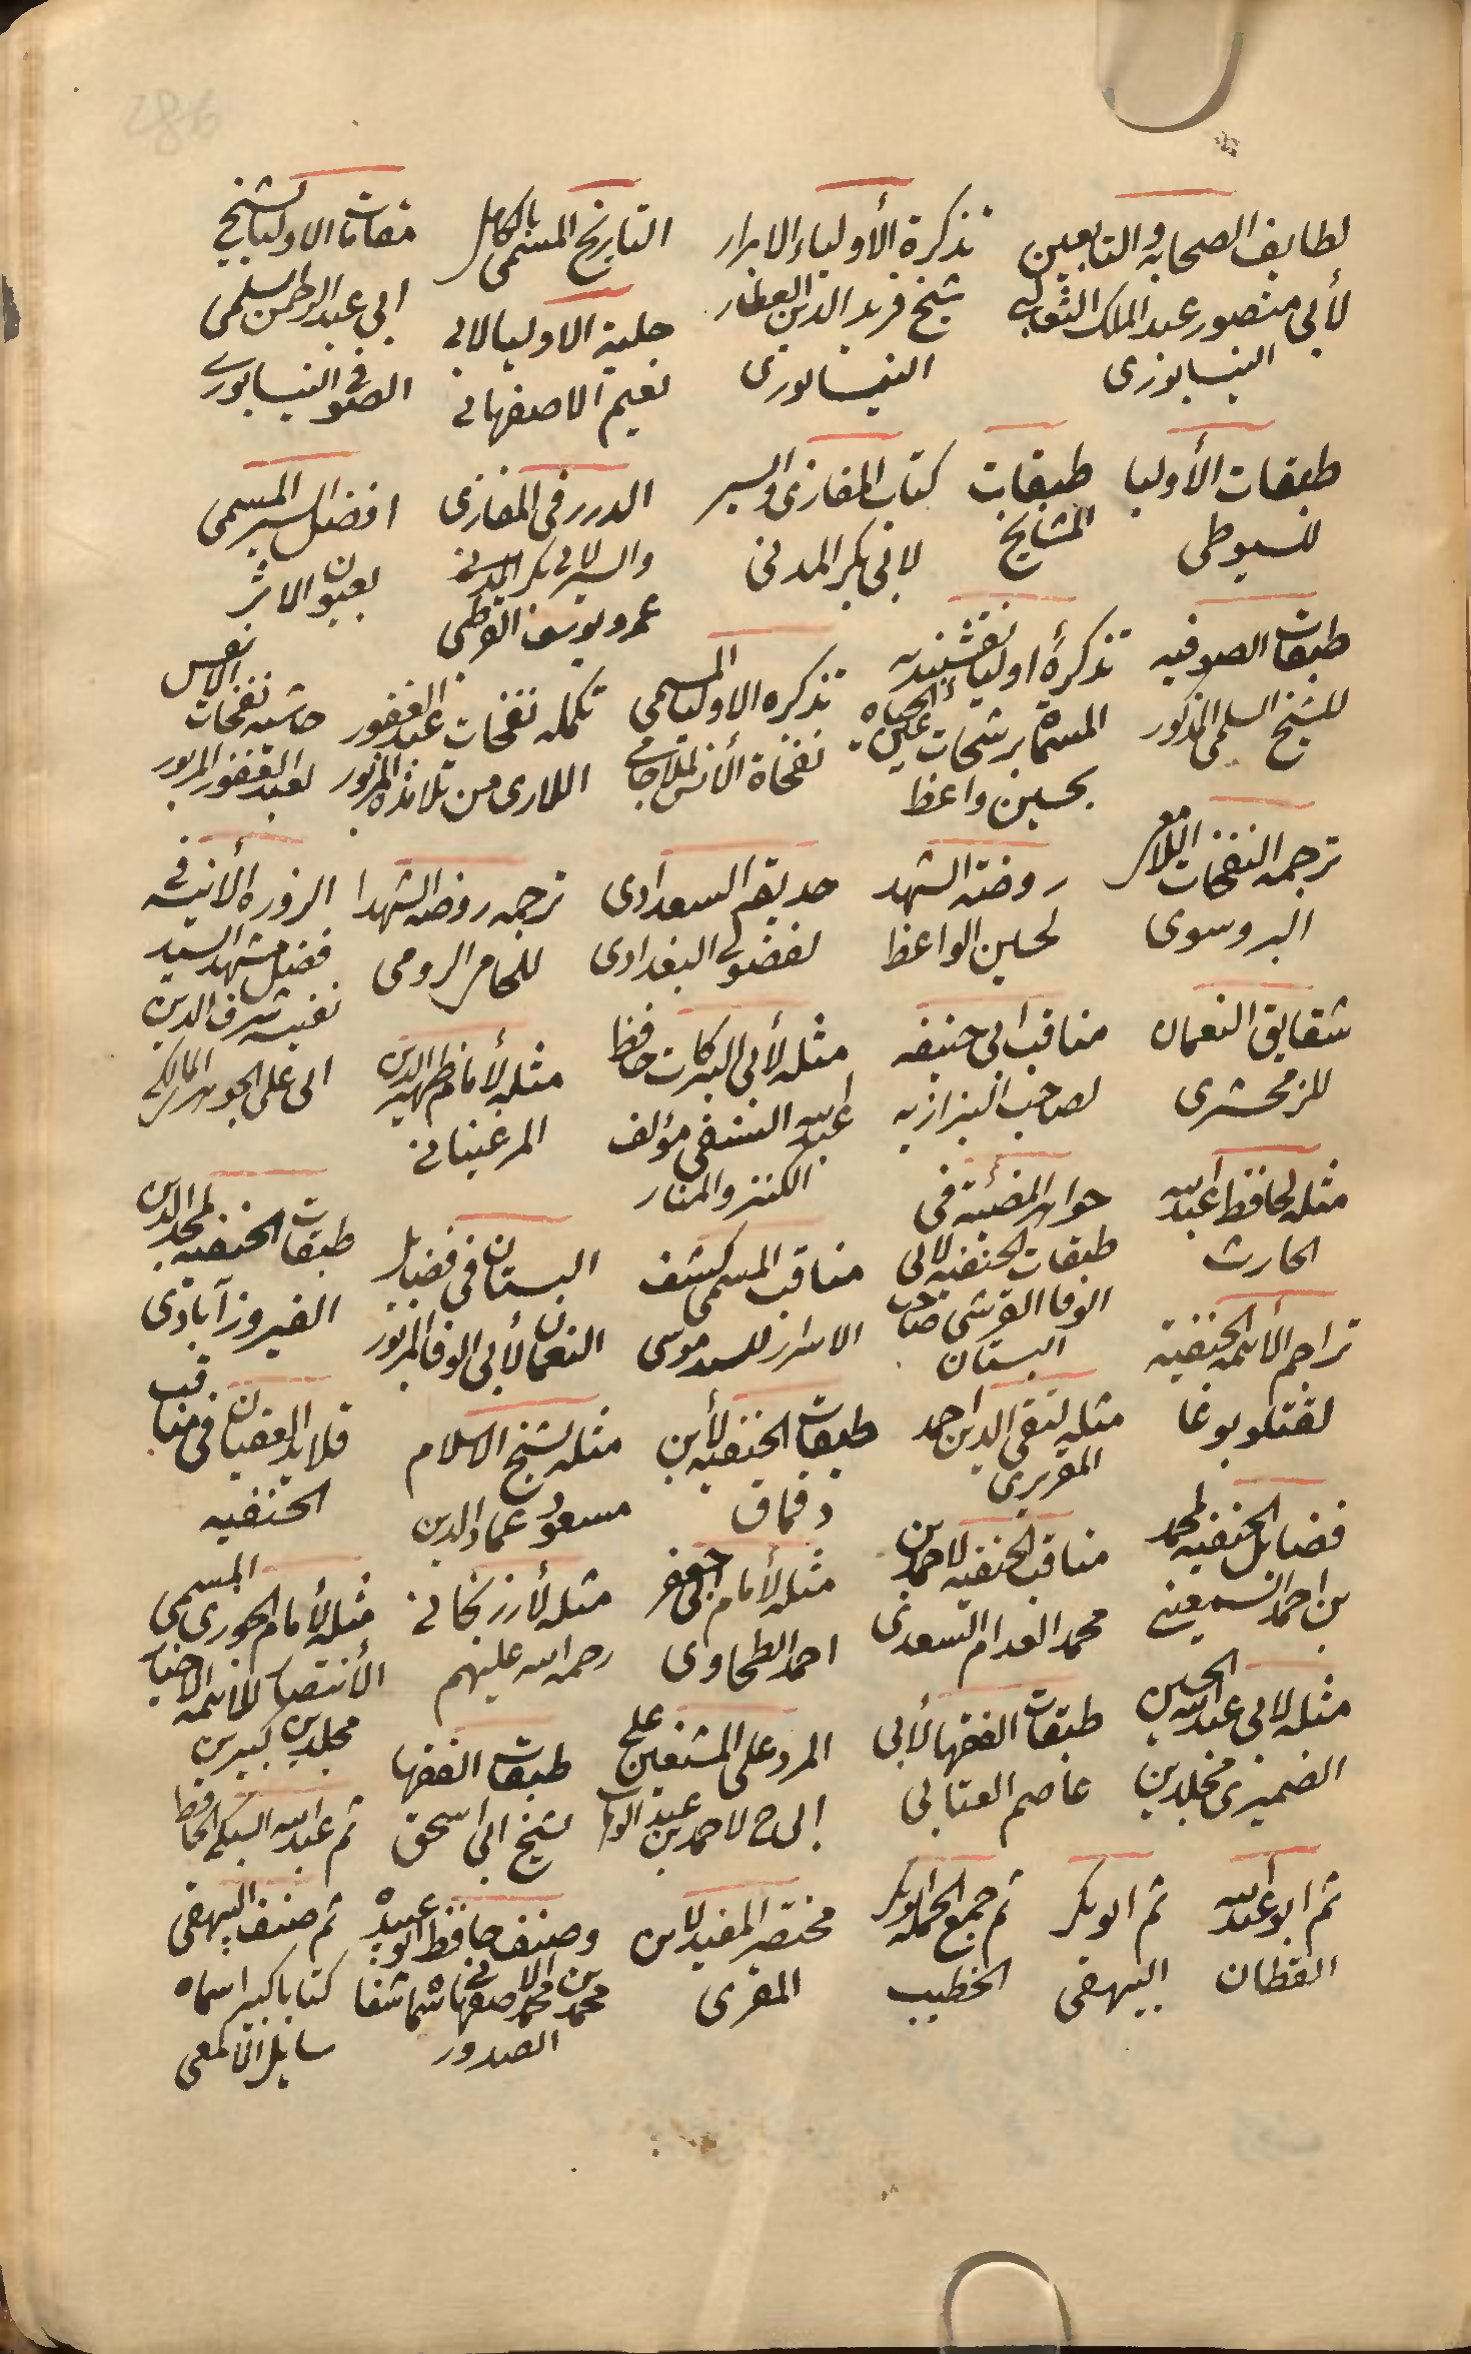 لطايف الصحابه والتابعين
لأبى منصور عبد الملك الثعالبى
النيسابورى
تذكرة الأولياء الابرار
شيخ فريد الدين العطار
النيسابورى
التاريخ المسمى بالكامل
حلية الاوليا لابى
نعيم الاصفهانى
مقامات الاوليا لشيخ
ابى عبد الرحمن السلمى
الصوفى النيسابورى
طبقات الأوليا
للسيوطى
طبقات
المشايخ
كتاب المغازى والسير
لابى بكر المدنى
الدرر فى المغازى
والسير لابى بكر المدنى
عمرو يوسف القرطبى
افضل السير المسمى
بعيون الاثر
طبقات الصوفيه
للشيخ السلمى المذكور
تذكرة اوليا نقشبنديه
المسماة برشحات عين الحياه
بحسين واعظ
تذكره الاوليا المسمى
نفحاة الأنس لملا جامى
تكمله نفحات عبد الغفور
اللارى من تلامذه المزبور
حاشيه نفحات الانس
لعبد الغفور المزبور
ترجمه النفحات اللامعى
البروسوى
روضة الشهد
لحسين الواعظ
حديقه السعدادى
لفضولى البغدادى
ترجمه روضه الشهدا
للجامى الرومى
الزوره الأنيسه فى
فضل مشهد السيد
نفيسه شرف الدين
ابى على الجوهر المالكى
شقايق النعمان
للزمخشرى
مناقب ابى حنيفه
لصاحب البزازيه
مثله لأبى البركات حافظ
عبد الله النسفى مؤلف
الكنز والمنار
مثله لأمام ظهير الدين
المرغينانى
مثله لحافظ عبد الله
الحارث
جواهر المضيئة فى
طبقات الحنفيه لابى
الوفا القرشى صاحب
البستان
مناقب المسمى كشف
الاسرار للسيد موسى
البستان فى فضايل
النعمان لأبى الوفا المزبور
طبقات الحنفيه لمجد الدين
الفيروزآبادى
تراجم الأئمه الحنفية
لقتلوبوغا
مثله لتقى الدين احمد
المقريرى
طبقات الحنفيه لأبن
دقماق
مثله لشيخ الاسلام
مسعود عماد الدين
قلائد العقيان فى مناقب
الحنفيه
فضائل الحنفيه لمحمد
بن احمد السميعنى
مناقب الحنفيه لاحمد بن
محمد العدام السعدى
مثله لأمام ابى جعفر
احمد الطحاوى
مثله لأرزنجانى
رحمه الله عليهم
مثله لأمام الجورى المسمى
الأنتصار للائمه الاخيار
مجلدين كبيرين
مثله لابى عبد الله الحسين
الضميرى مجلدين
طبقات الفقها لأبى
عاصم العتابى
المرد على المشنعين على
ابى ح لاحمد بن عبد الوهاب
طبقات الفقها
لشيخ ابى اسحق
ثم عبد الله السبكى الحافظ
ثم ابو عبد الله
القطان
ثم ابو بكر
البيهقى
ثم جمع الحمد ابو بكر
الخطيب
مختصر المفيد لابن
المقرى
وصنف حافظ ابو عبيد
محمد بن محمد الاصفهانى شماشفا
الصدور
ثم صنف البيهقى
كتابا كبيرا سماه
سابل الألمعى